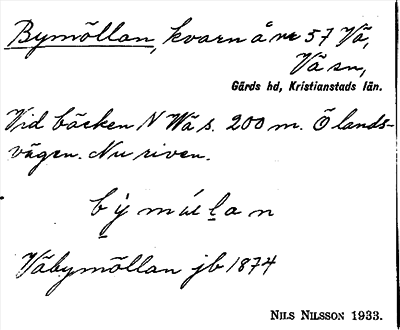 Bymöllan, kvarn å nr 57 Vä,
Vä sn,
Gärds hd, Kristianstads län.
Vid bäcken N Wä s. 200 m. Ö lands-
vägen. Nu riven.
Väbymöllan jb 1874
NILS NILSSON 1933.